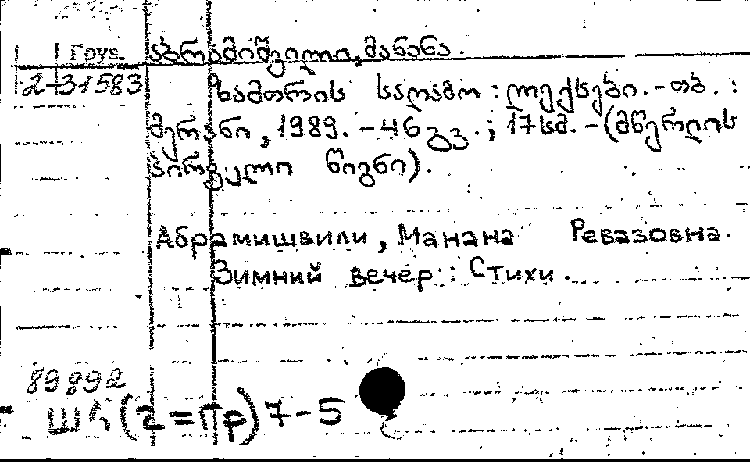 Груз. აბრამიშვილი, მანანა.
2-31583 ზამთრის საღამო : ლექსები. - თბ. :
მერანი, 1989. - 46 გვ. ; 17 სმ. - (მწერლის
პირველი წიგნი).
Абрамишвили, Манана Ревазовна.
Зимний вечер : Стихи.
89892
(2=Гр) 7-5